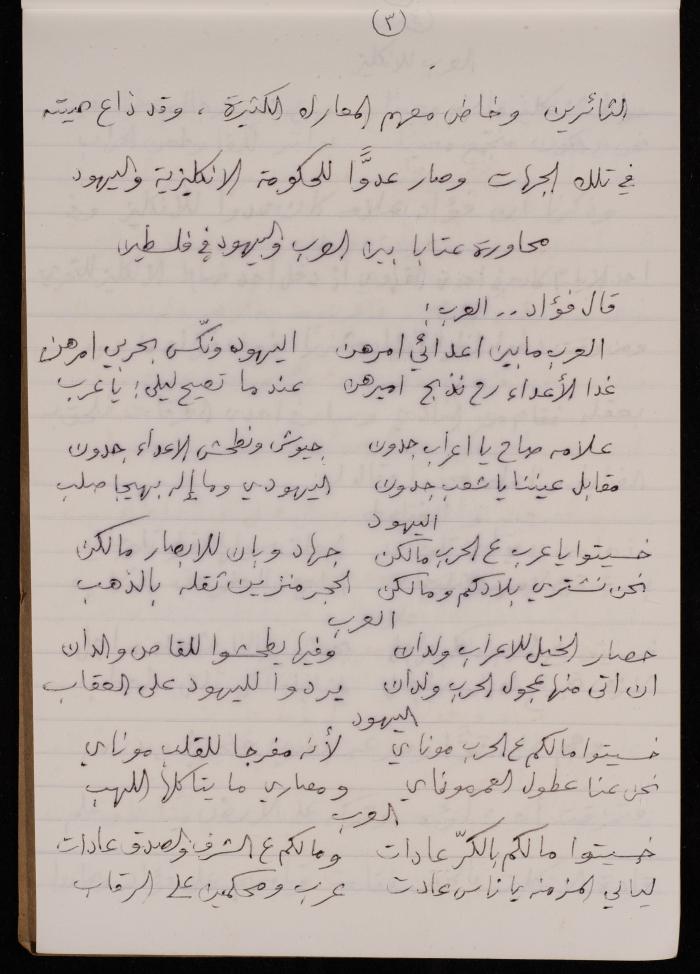 (٣)
الثائرين وخاض معهم المعارك الكثيرة ، وقد ذاع صيته
في تلك الجهات وصار عدوًّا للحكومة الانكليزية واليهود
محاورة عتابا بين العرب واليهود في فلسطين
قال فؤاد .. العرب :
العرب ما بين اعدائي امرهن اليهود ونكّس بحربي امرهن
غدا الأعداء رح نذبح اميرهن عند ما تصيح ليلى : يا عرب
علامه صاح يا اعراب جدون جيوش ونطحش الاعداء جدون
مقابل عيننا يا شعب جدون اليهودي وما إله بهيجا صلب
اليهود
خسيتوا يا عرب ع الحرب مالكن جهاد وبان للابصار مالكن
نحن نشتري بلادكم ومالكن الحجر منزين ثقله بالذهب
العرب
حصار الخيل للاعراب ولدان وفيها يطحشوا للقاص والدان
ان اتى منها عجول الحرب ولدان يردوا لليهود على العقاب
اليهود
خسيتوا مالكم ع الحرب موناي لأنه مفرجا للقلب موناي
نحن عنا عطول العمر موناي ومصاري ما يتاكلها اللهب
العرب
خسيتوا مالكم بالكرّ عادات ومالكم ع الشرف والصدق عادات
ليالي المزمنه يا ناس عادت عرب ومحكمين على الرقاب